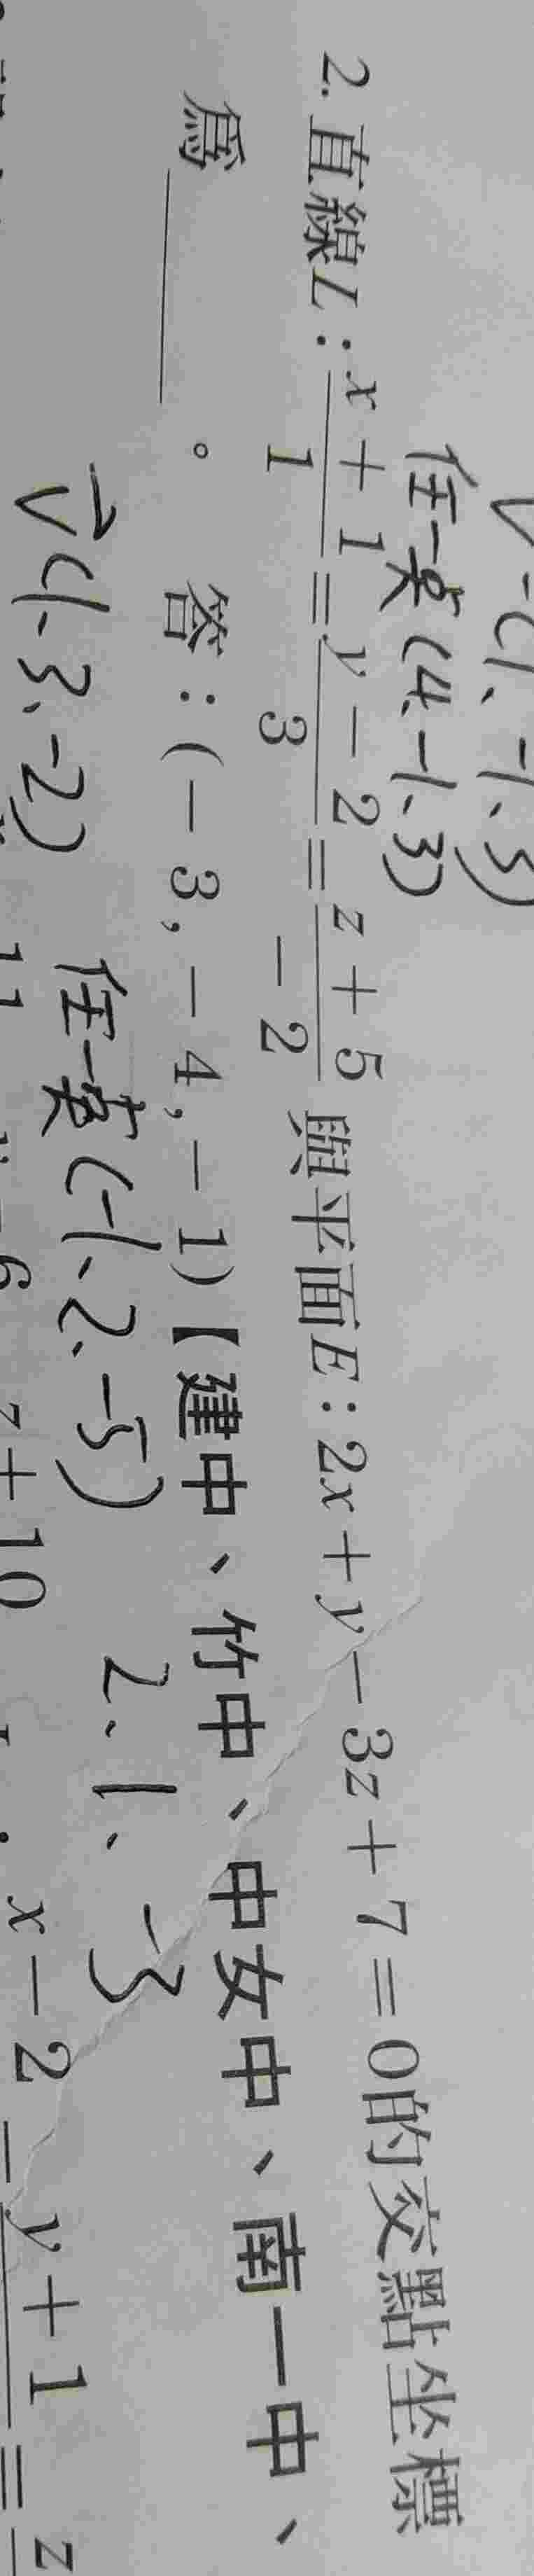 √-(1、-1、5)
任一點(4、-1、3)
2. 直線L：x + 1 / 1 = y - 2 / 3 = z + 5 / -2 與平面E：2x + y - 3z + 7 = 0的交點坐標
為______。 答：(-3, -4, -1)【建中、竹中、中女中、南一中、
v(1、3、-2) 任一點(-1、2、-5) 2、1、-3
z + 10 x - 2 y + 1 = z